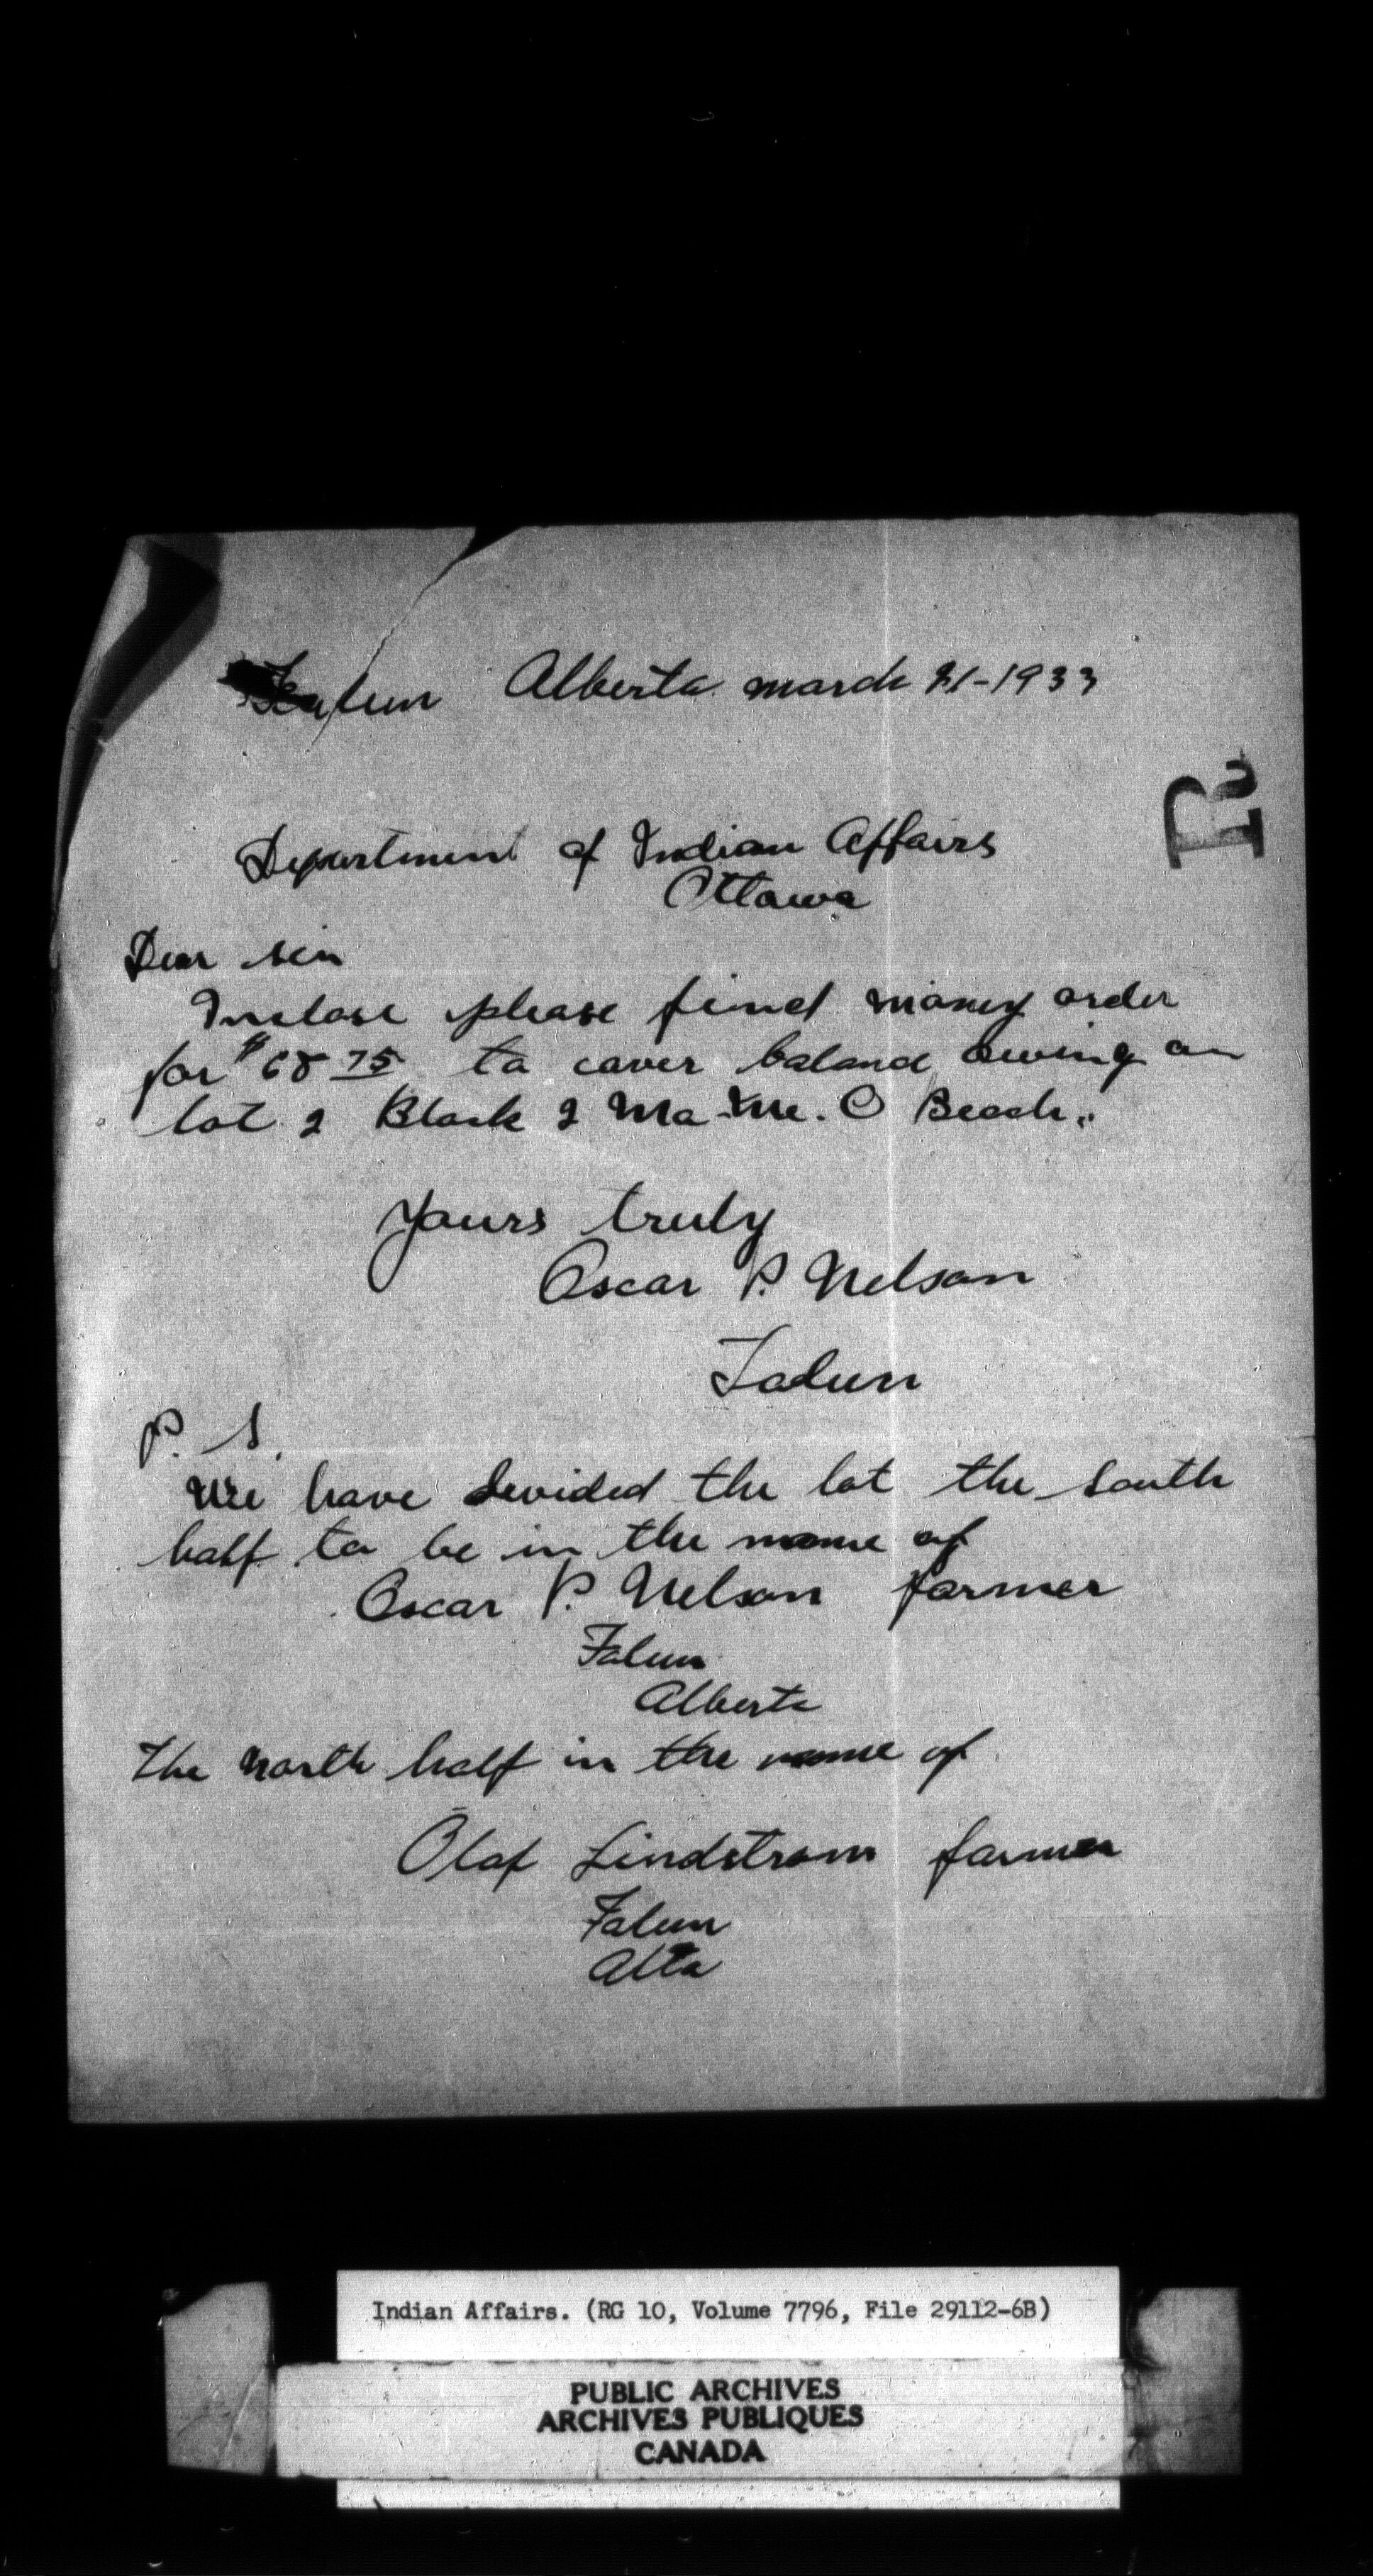 Falun Alberta march 21-1933
R
Department of Indian Affairs
Ottawa
Dear sir
Inclose please find money order
for $68 75 to cover balance owing on
lot 2 Block 2 Ma-Me. O Beach.
Yours truly
Oscar P. Nelson
Falun
P. S.
We have devided the lot the south
half to be in the name of
Oscar P. Nelson farmer
Falun
Alberta
the north half in the name of
Olaf Lindstrom farmer
Falun
Alta
Indian Affairs. (RG 10, Volume 7796, File 29112-6B)
PUBLIC ARCHIVES
ARCHIVES PUBLIQUES
CANADA